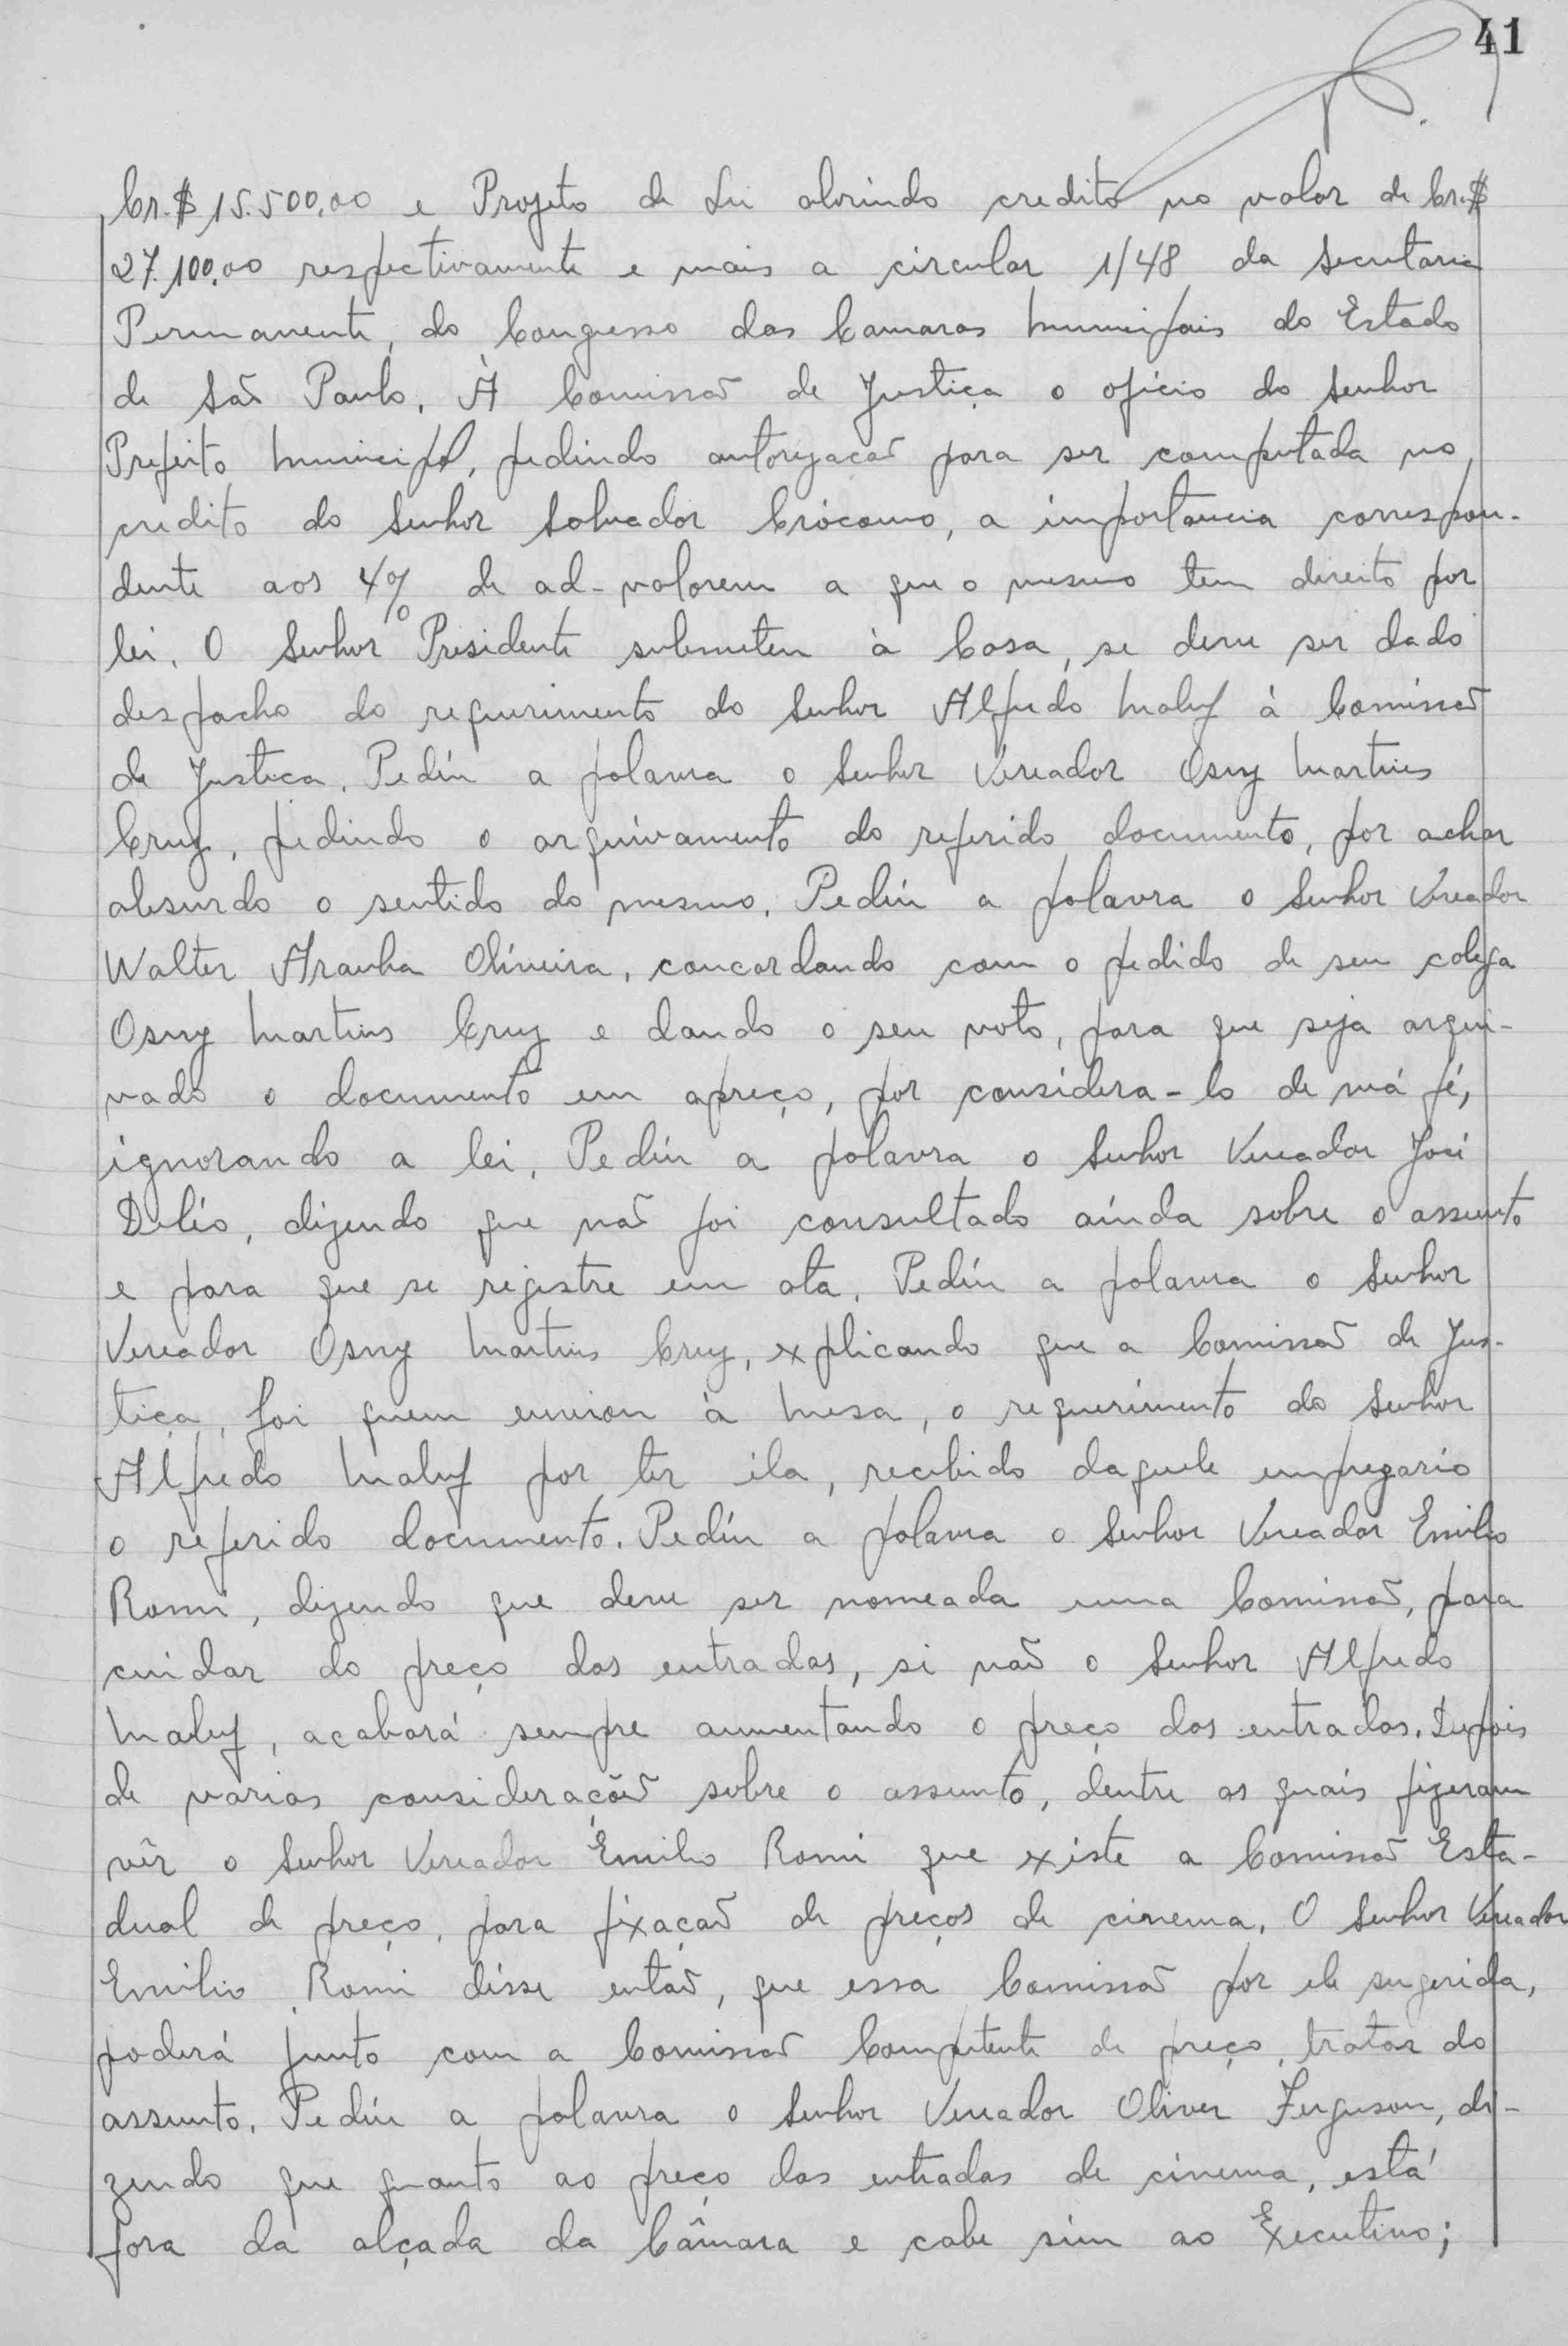 41
Cr.$ 15.500,00 e Projeto de Lei abrindo credito no valor de Cr.$
27.100,00 respectivamente e mais a circular 1/48 da Secretaria
Permanente, do Congresso das Camaras Municipais do Estado
de São Paulo. À Comissão de Justiça o oficio do Senhor
Prefeito Municipal, pedindo autorização para ser computada no
credito do Senhor Salvador Crócomo, a importancia correspon-
dente aos 4% de ad-valorem a que o mesmo tem direito por
lei. O Senhor Presidente submeteu à Casa, se deve ser dado
despacho do requerimento do Senhor Alfredo Maluf à Comissão
de Justiça. Pediu a palavra o Senhor Vereador Osny Martins
Cruz, pedindo o arquivamento do referido documento, por achar
absurdo o sentido do mesmo. Pediu a palavra o Senhor Vereador
Walter Aranha Oliveira, concordando com o pedido de seu colega
Osny Martins Cruz e dando o seu voto, para que seja arqui-
vado o documento em apreço, por considera-lo de má fé,
ignorando a lei. Pediu a palavra o Senhor Vereador José
Deléo, dizendo que não foi consultado ainda sobre o assunto
e para que se registre em ata. Pediu a palavra o Senhor
Vereador Osny Martins Cruz, explicando que a Comissão de Jus-
tiça, foi quem enviou à Mesa, o requerimento do Senhor
Alfredo Maluf por ter ela, recebido daquele empregario
o referido documento. Pediu a palavra o Senhor Vereador Emilio
Romi, dizendo que deve ser nomeada uma Comissão, para
cuidar do preço das entradas, si não o Senhor Alfredo
Maluf, acabará sempre aumentando o preço das entradas. Depois
de varias considerações sobre o assunto, dentre as quais fizeram
vêr o Senhor Vereador Emilio Romi que existe a Comissão Esta-
dual de preço, para fixação de preços de cinema. O Senhor Vereador
Emilio Romi disse então, que essa Comissão por ele sugerida,
poderá junto com a Comissão Competente de preço, tratar do
assunto. Pediu a palavra o Senhor Vereador Oliver Ferguson, di-
zendo que quanto ao preço das entradas de cinema, está
fora da alçada da Câmara e cabe sim ao Executivo;